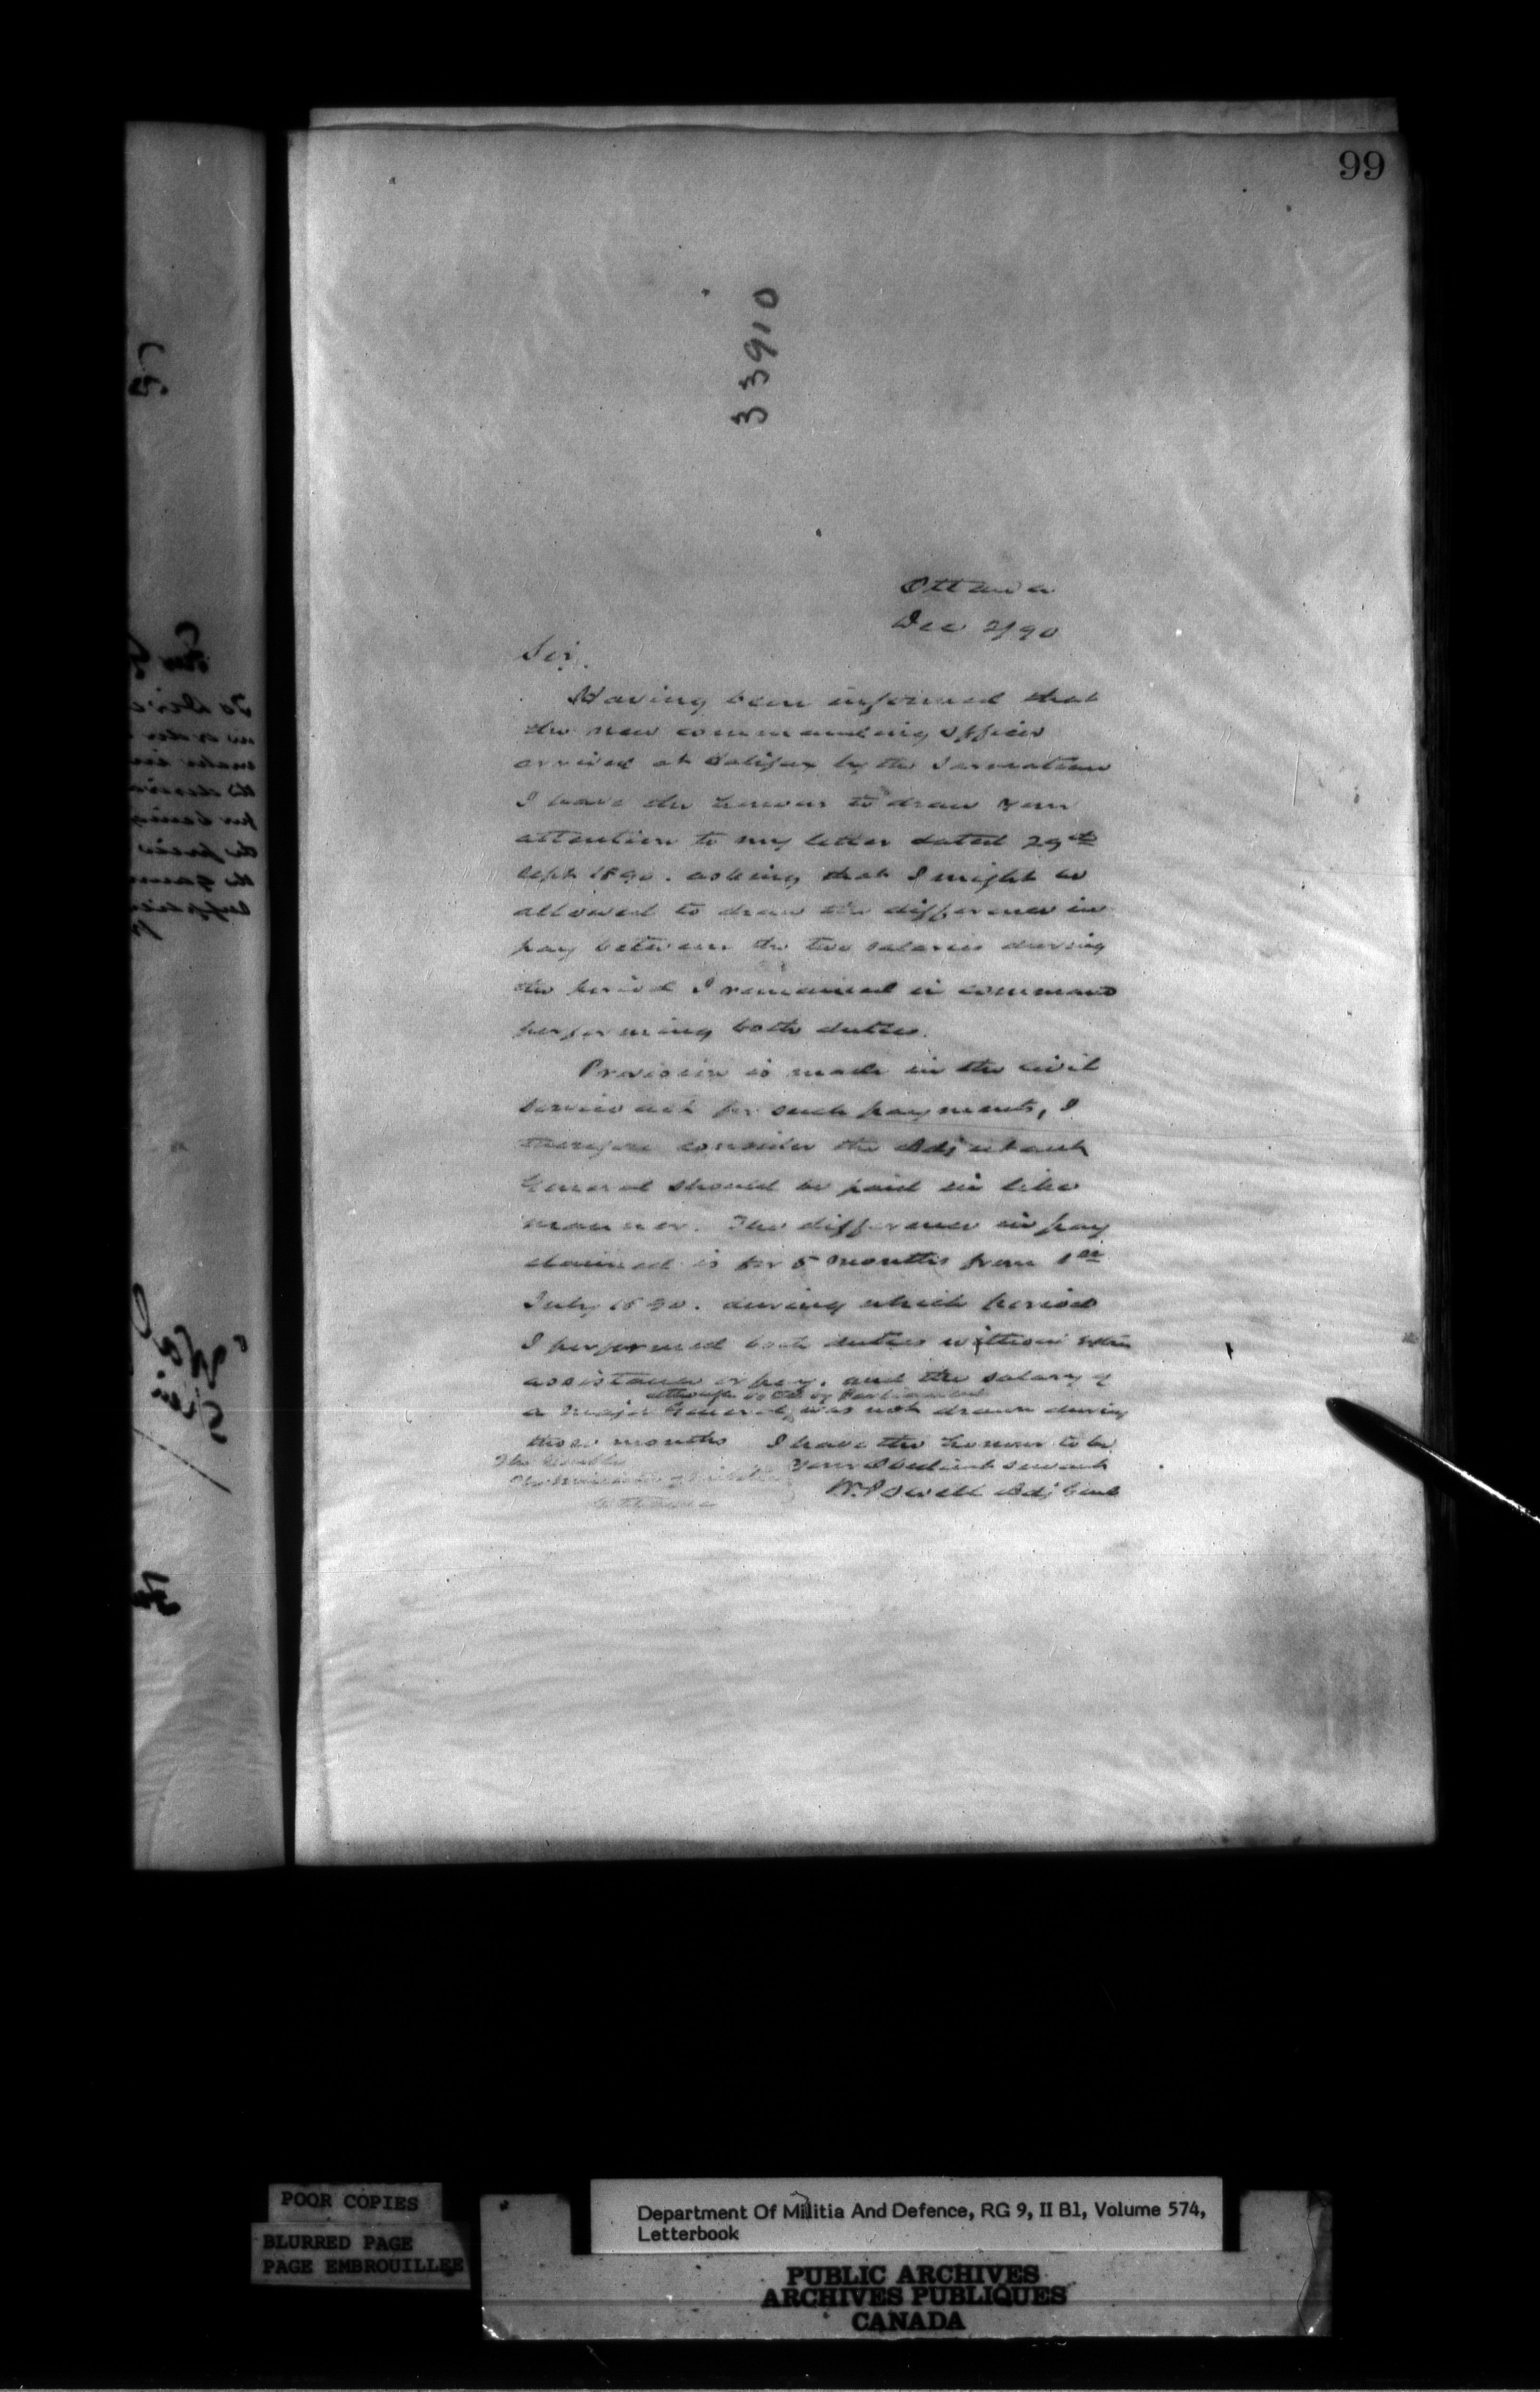 99
33910
Ottawa
Dec 2/90
Sir,
Having been informed that
the new commanding officer
arrived at Halifax by the Sarmatian
I have the honour to draw your
attention to my letter dated 29th
Sept 1890. asking that I might be
allowed to draw the difference in
pay between the two salaries during
the period I remained in command
performing both duties.
Provision is made in the civil
service act for such payments, I
therefore consider the Adjutant
General should be paid in like
manner. The difference in pay
claimed is for 5 months from 1st
July 1890. during which period
I performed both duties without extra
assistance or pay. and the salary of
although voted by Parliament
a Major General, was not drawn during
those months I have the honour to be
The Honble Your Obedient servant
The Minister of Militia W. Powell Adj Genl
Ottawa
POOR COPIES
BLURRED PAGE
PAGE EMBROUILLEE
Department Of Militia And Defence, RG 9, II B1, Volume 574,
Letterbook
PUBLIC ARCHIVES
ARCHIVES PUBLIQUES
CANADA